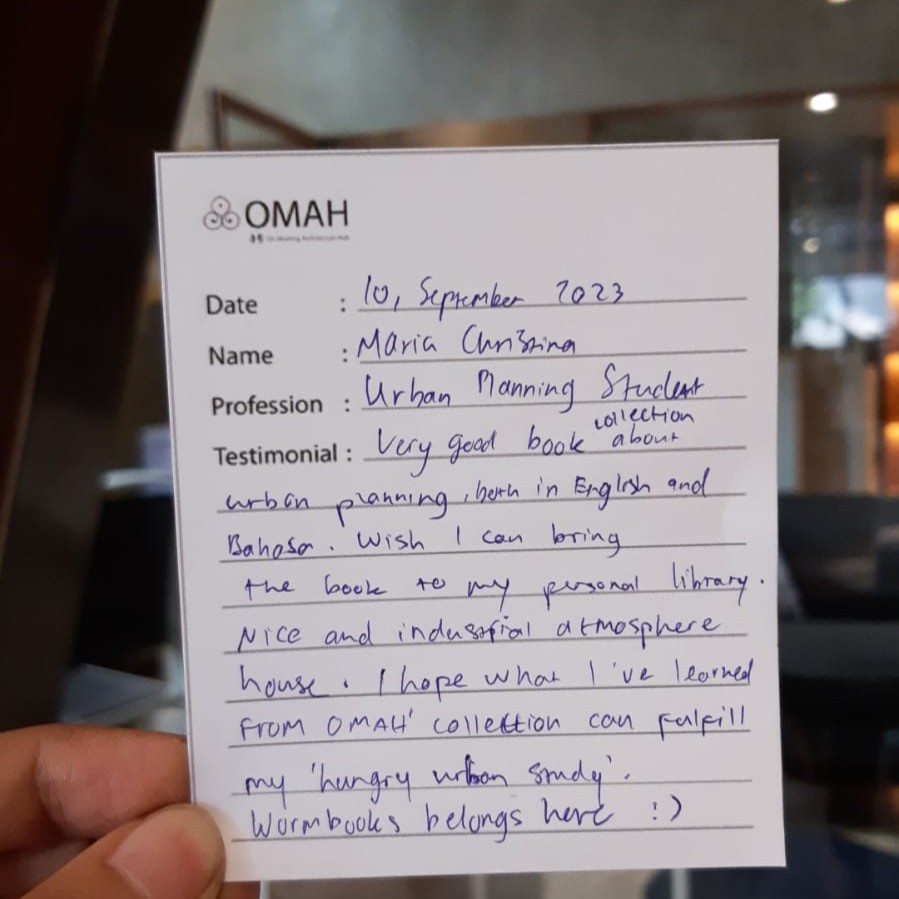 OMAH
Date : 10, September 2023
Name : Maria Christina
Profession : Urban Planning Student
collection
Testimonial : Very good book about
urban planning, both in English and
Bahasa. Wish I can bring
the book to my personal library.
Nice and industrial atmosphere
house. I hope what I've learned
from OMAH' collection can fulfill
my 'hungry urban study'.
Wormbooks belongs here :)